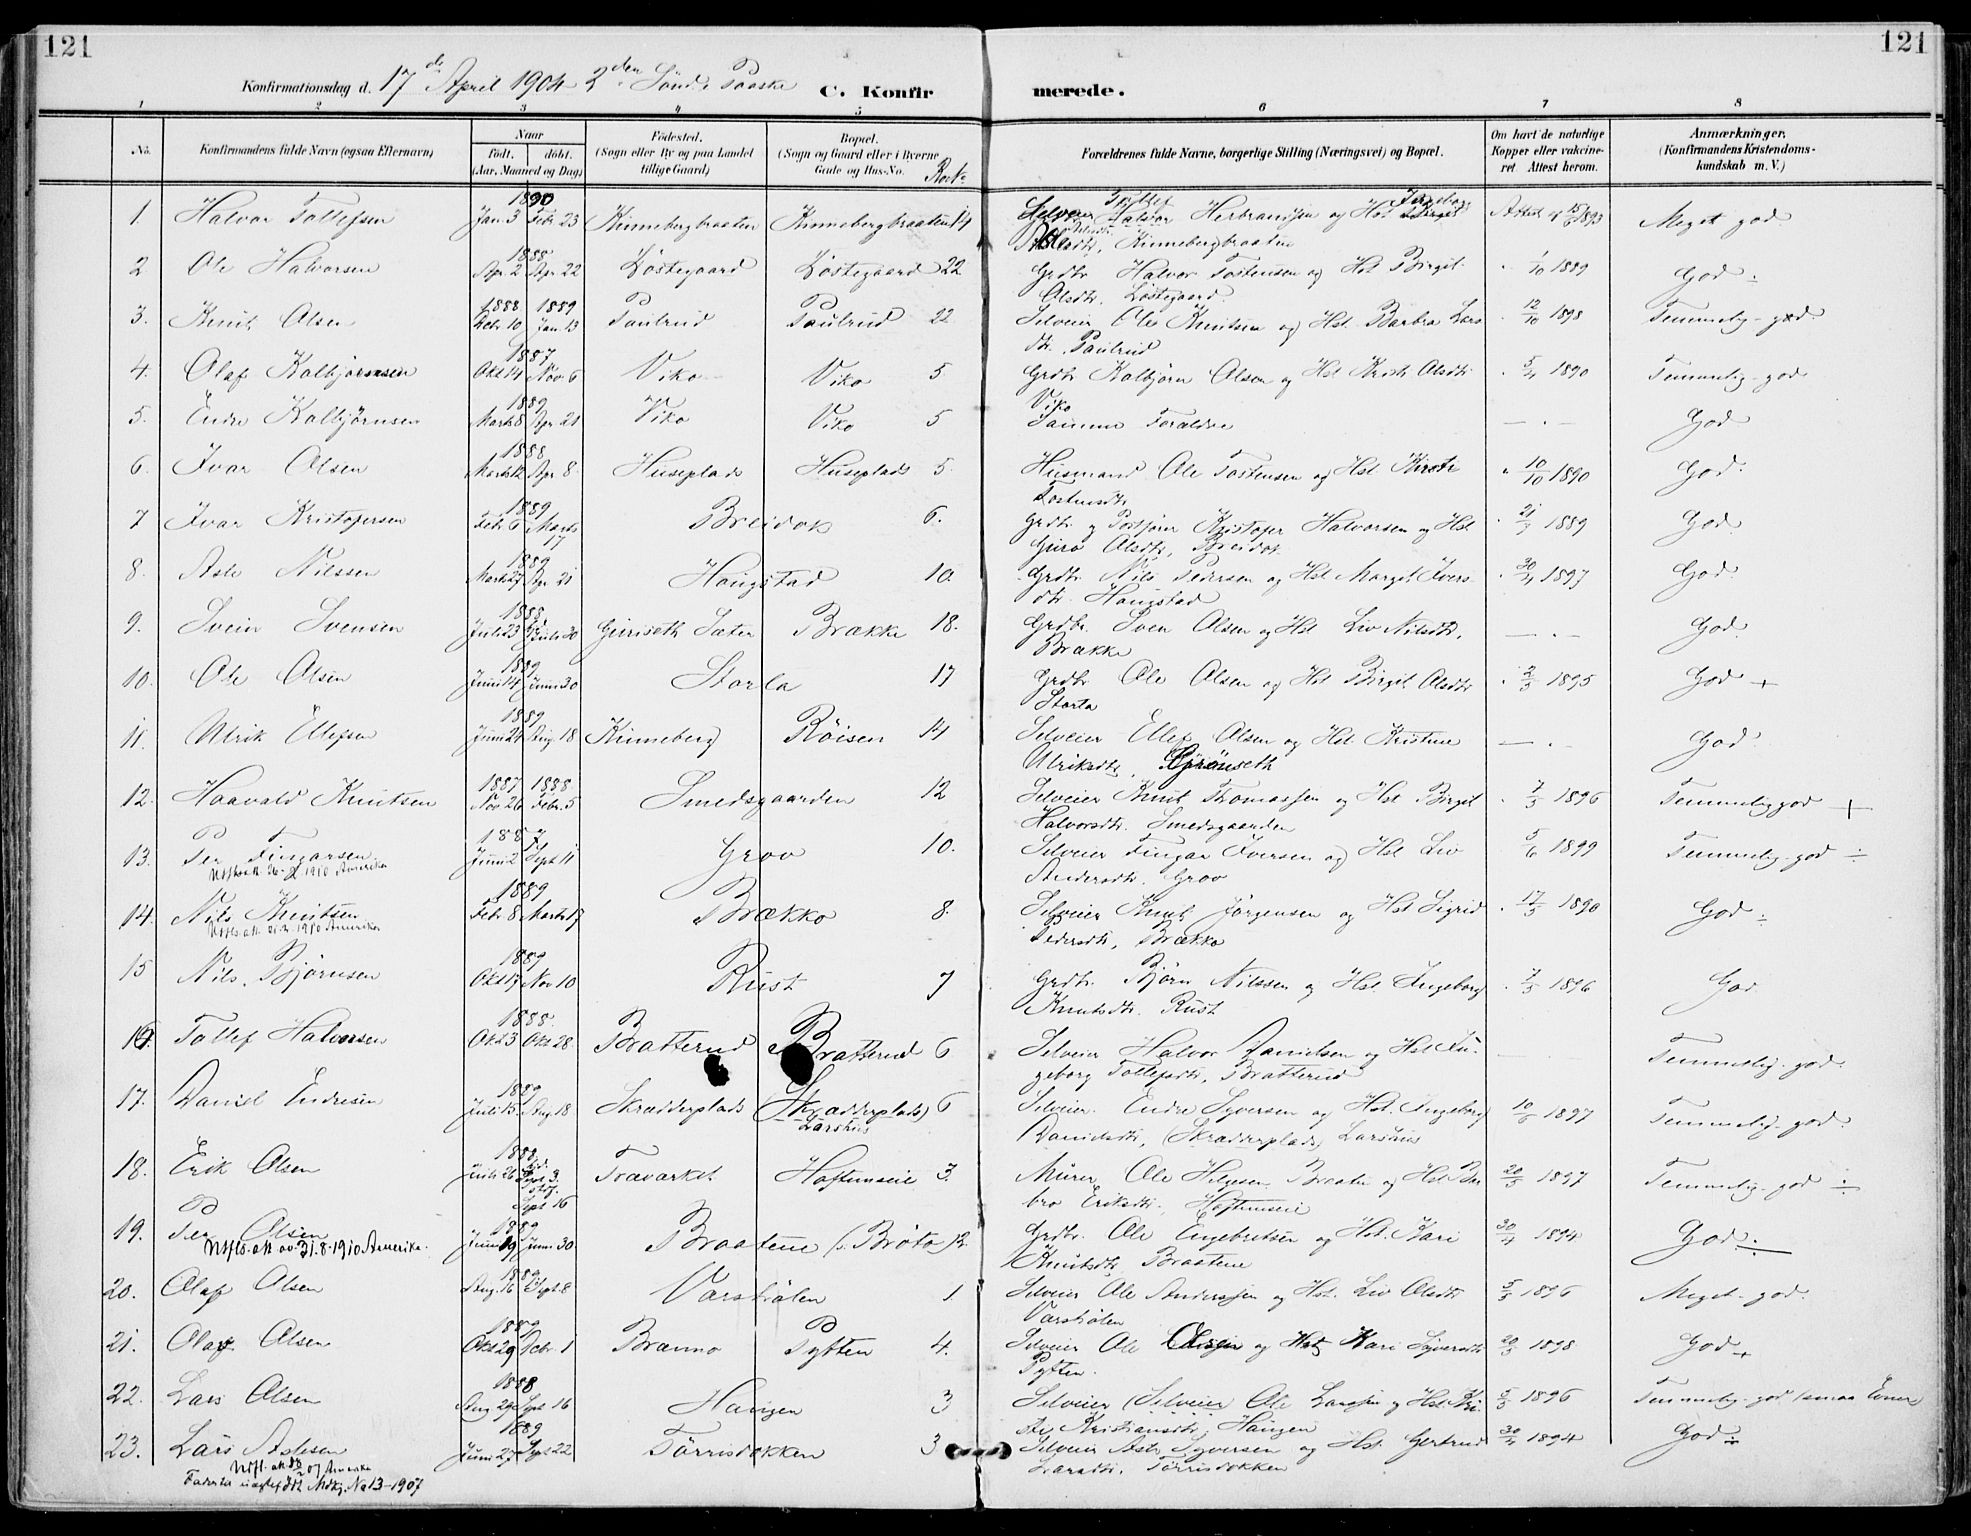 121
121
Konfirmationsdag d. 17de April 1904 2den Sönd. Paaske C. Konfirmerede.
1 2 3 4 5 6 7 8
No. Konfirmandens fulde Navn (ogsaa Efternavn) Naar födt. döbt. (Aar, Maaned og Dag) Födested. (Sogn eller By og paa Landet tillige Gaard) Bopæl. (Sogn og Gaard eller i Byerne Gade og Hus-No. Forældrenes fulde Navne, borgerlige Stilling (Næringsvei) og Bopæl. Om havt de naturlige Kopper eller vakcineret Attest herom. Anmærkninger. (Konfirmandens Kristendomskundskab m. V.)
1890
1. Halvor Tollefsen Jan. 3 Febr 23 Kinnebergbraaten Kinnebergbraaten 14 Selveier Herbrandsen og Hst Attest 1893 Meget god
Kinnebergbraaten
1888
2 Ole Halvorsen Apr. 2 Apr. 22 Løstegaard Løstegaard 22 Grdbr. Halvor Tostensen og Hst Birgit 1/10 1889 God ÷
Olsdtr. Løstegaard.
1888 1889
3. Knut Olsen Decbr. 10 Jan. 13 Paulrud Paulrud 22 Selveier Ole Knutsen og Hst. Barbra Lars 12/10 1898 Temmelig-god.
dtr. Paulrud
1887
4. Olaf Kolbjørnsen Okt 14 Nov 6 Viko Viko 5 Grdbr Kolbjørn Olsen og Hst Olsdtr 5/4 1890 Temmelig-god
Viko
1889
5. Endre Kolbjørnsen Marts 8 Apr. 21 Viko Viko 5 Samme Foraldre — . — God
1888
6. Ivar Olsen Marts 12 Apr 8. Huseplads Huseplads 5. Husmand Ole Tostensen og Hst. 10/10 1890 God.
Tostensdtr
1889
7 Ivar Kristofersen Febr 6 Marts 17 Breidok 6. Grdbr. og Kristofer Halvorsen og Hst 1889 God.
Guro Olsdtr, Breidok
1889
8. Asle Nilssen Marts 27 Apr. 21 Haugstad 10. Grdbr. Nils Pedersen og Hst Margit Ivers 30/4 1897 God.
dtr. Haugstad
1888
9. Svein Svensen Juli 23 Juli 30 Sæter Brække 18. Grdbr. Sven Olsen og Hst Liv Nilsdtr. — . — God.
Brække
1889
10. Ole Olsen Juni 14 Juni 30 Storla 17 Grdbr. Ole Olsen og Hst Birgit Olsdtr 2/3 1895 God +
Storla
1889
11. Ulrik Ellefsen Juni 24 Aug. 18 Kinneberg Röisen 14 Selveier Ellef Olsen og Hst. Kristine — . — God.
Ulriksdtr,
1887 1888.
12. Haavald Knutsen Nov. 26 Febr. 5 Smedsgaarden 12 Selveier Knut Thomassen og Hst Birgit 7/5 1896 Temmeliggod +
Halvorsdtr. Smedsgaarden
1887
13. Per Fingarsen Juni 2 Sept 11 Grov 10. Selveier Fingar Iversen og Hst Liv 5/6 1899 Temmelig-god ÷
1910 Amerika Andersdtr. Grov
1889
14. Nils Knutsen Febr 8 Marts 17 Brækko 8. Selveier Knut Jørgensen og Hst Sigrid 17/5 1890 God ÷
1910 Amerika Pedersdtr, Brækko
1889
15 Nils Bjørnsen Okt 17 Nov 10 Rust 7 Grdbr. Bjørn Nilssen og Hst. Ingeborg 7/5 1896 God
Knutsdtr. Rust
1888.
16. Tollef Halvorsen Okt 3 Okt 28 Bratterud Bratterud 6 Selveier Halvor Danielsen og Hst In- Temmelig-god.
geborg Tollefsdtr, Bratterud
1889
17. Daniel Endresen Juli 15 Aug 18 Skradderplads (Skradderplads) 6 Selveier. Endre Syversen og Hst. Ingeborg 1897 Temmelig-god.
Larshus Danielsdtr, (Skradderplads) Larshus
1888
18. Erik Olsen Juli 26 Travarket 3. Murer Ole Helgesen Braaten og Hst Bar 20/5 1897 Temmelig-god ÷
Sept 16 bro Eriksdtr.
1889
19. Per Olsen Juni 30 Braatene (Bröto) 12 Grdbr. Ole Engebretsen og Hst. Kari 30/4 1894 God ÷
31.8.1910 Amerika. Knutsdtr, Braatene
1889
20. Olaf Olsen Aug. 16 Sept 8 1 Selveier Ole Anderssen og Hst. Liv Olsdtr 5/5 1896 Meget-god.
1889
21. Olaf Olsen Okt 29 Decbr. 1 Branno Pytten 4. Selveier Ole og Hst Kari Syversdtr 20/5 1898 God +
Pytten.
1888
22. Lars Olsen Aug 29 Sept 16 Haugen 3 Selveier (Selveier Ole Larssen og Hst. 5/5 1896 Temmelig-god (smaa Evner
Kristiansdtr, Haugen
1889
23. Lars Aslesen Juni 27 Sept 22 Törrisdokken 3 Selveier Syversen og Hst Gertrud 30/4 1894 God ÷
07 Amerika Larsdtr. Törrisdokken
No 13-1907